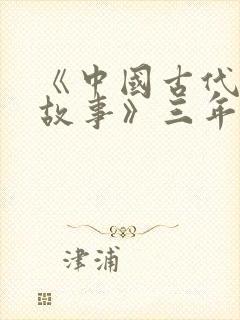 《中國古代
故事》三年
津浦